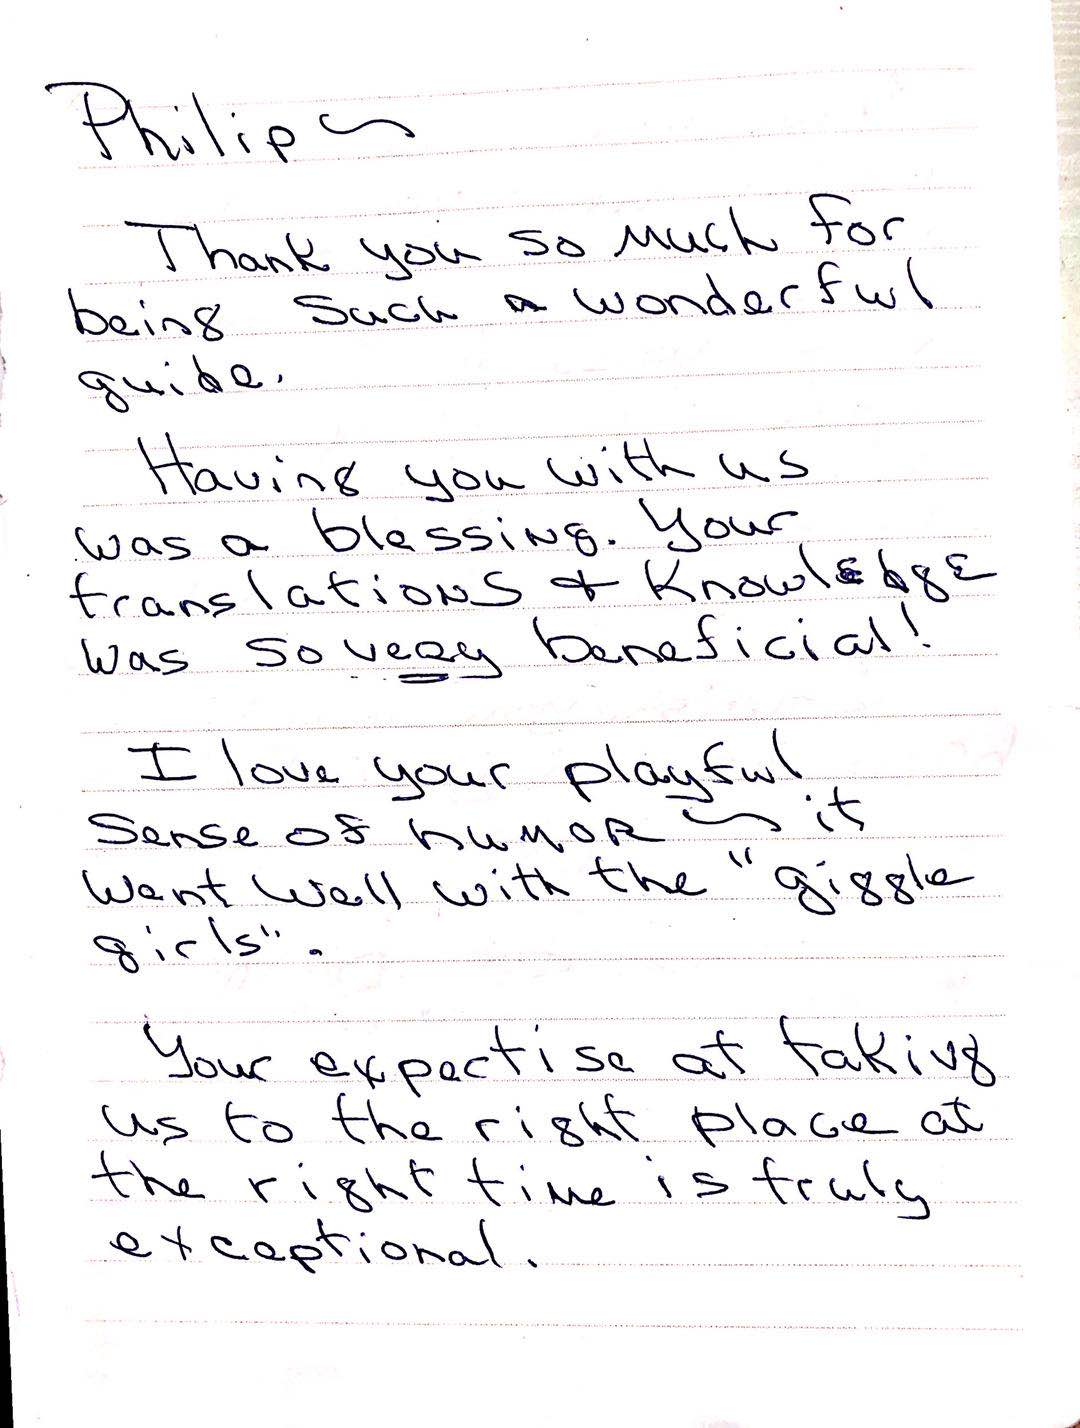 Philip ~
Thank you so much for
being such a wonderful
guide.
Having you with us
was a blessing. Your
translations & Knowledge
was so very beneficial!
I love your playful
sense of humor ~ it
went well with the "giggle
girls".
Your expertise at taking
us to the right place at
the right time is truly
exceptional.